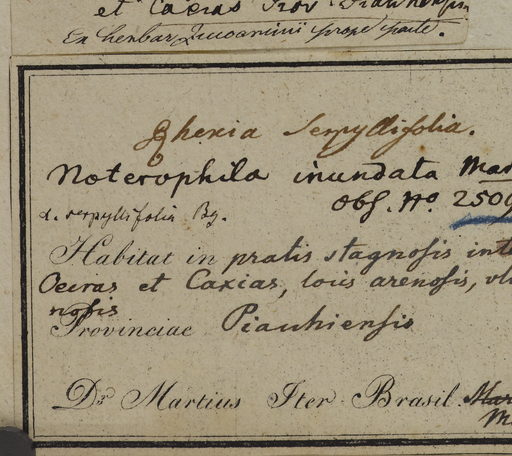 et Caxias Prov. Piauhensis
Ex herbar. Zuccarinii prope parte.
Rhexia serpyllifolia.
Noterophila inundata Mar
Obs. No. 2509
α. serpyllifolia Bg.
Habitat in pratis stagnosis inte
Oeiras et Caxias, locis arenosis, uli
nosis
Provinciae Piauhiensis
Dr. Martius Iter Brasil. Mar
M